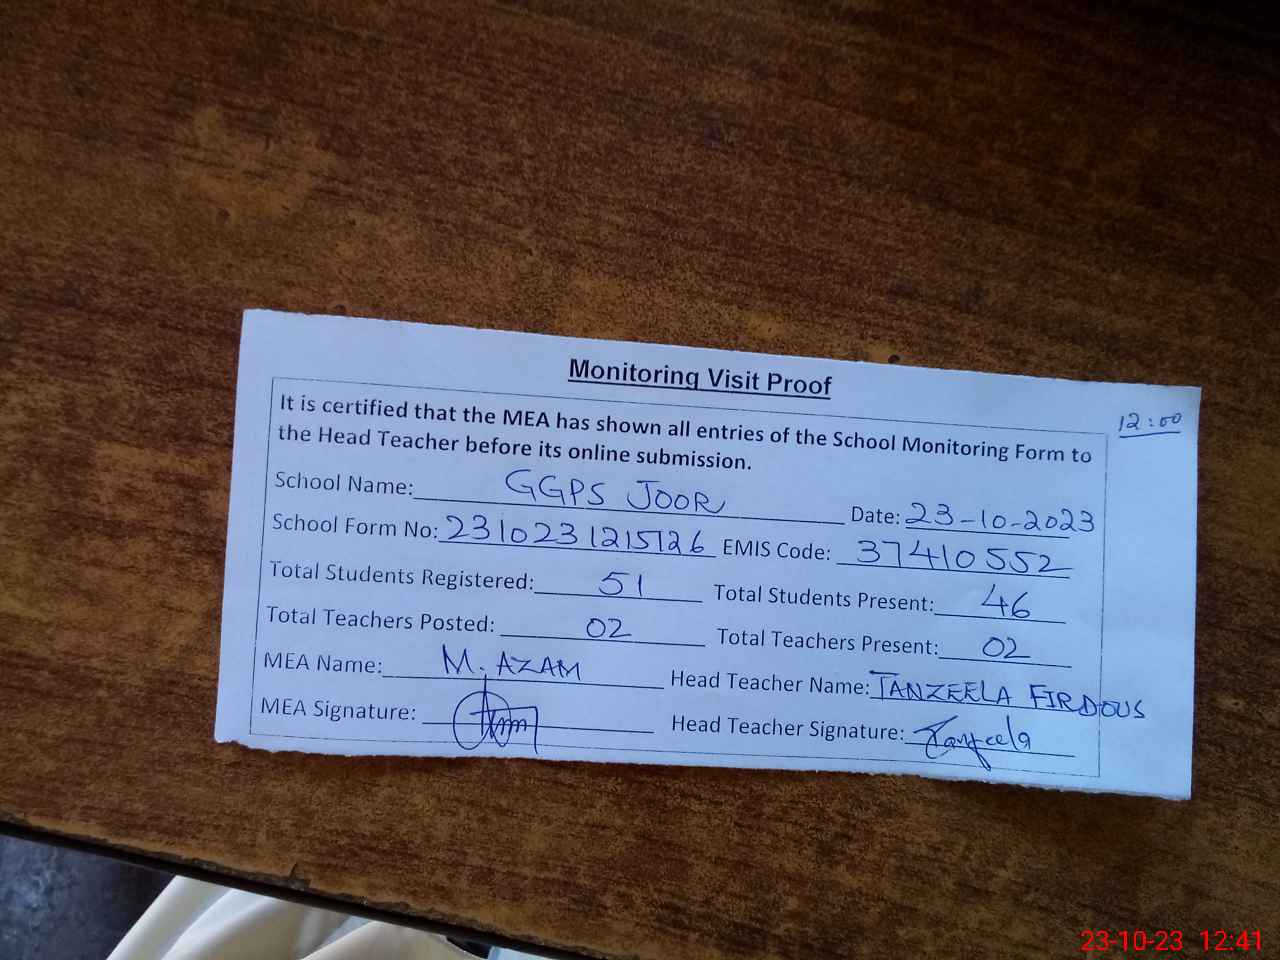 Monitoring Visit Proof
12:00
It is certified that the MEA has shown all entries of the School Monitoring Form to
the Head Teacher before its online submission.
School Name: GGPS JOOR Date: 23-10-2023
School Form No: 2310231215726 EMIS Code: 37410552
Total Students Registered: 51 Total Students Present: 46
Total Teachers Posted: 02 Total Teachers Present: 02
MEA Name: M. AZAM Head Teacher Name: TANZEELA FIRDOUS
MEA Signature: Head Teacher Signature: Tanzeela
23-10-23 12:41